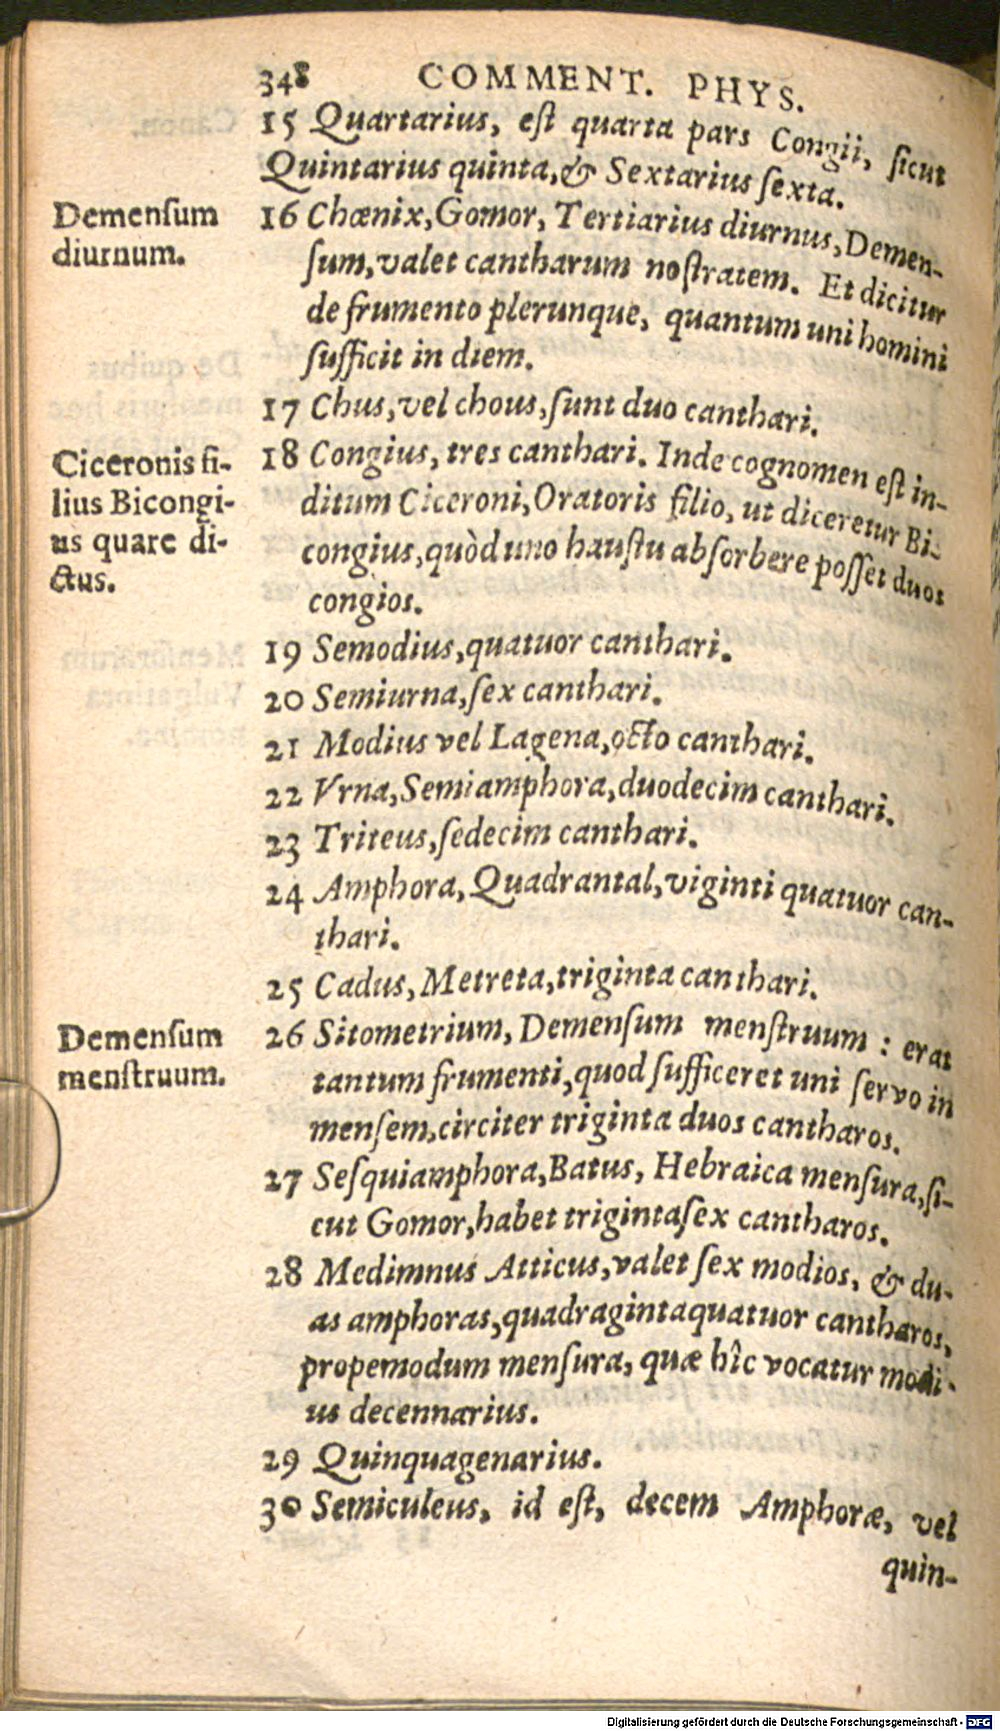 348 COMMENT. PHYS.
15 Quartarius, eſt quarta pars Congii, ſicut
Quintarius quinta,& Sextarius ſexta.
Demenſum
diurnum.
16 Chœnix,Gomor, Tertiarius diurnus,Demen-
ſum,valet cantharum noſtratem. Et dicitur
de frumento plerunque, quantum uni homini
ſufficit in diem.
17 Chus,vel chous,ſunt duo canthari.
Ciceronis fi-
lius Bicongi-
us quare di-
ctus.
18 Congius, tres canthari. Inde cognomen eſt in-
ditum Ciceroni,Oratoris filio, ut diceretur Bi-
congius,quòd uno hauſtu abſorbere poſſet duos
congios.
19 Semodius,quatuor canthari.
20 Semiurna,ſex canthari.
21 Modius vel Lagena,octo canthari.
22 Vrna,Semiamphora,duodecim canthari.
23 Triteus,ſedecim canthari.
24 Amphora, Quadrantal,viginti quatuor can-
thari.
25 Cadus, Metreta,triginta canthari.
Demenſum
menſtruum.
26 Sitometrium, Demenſum menſtruum : erat
tantum frumenti,quod ſufficeret uni ſervo in
menſem,circiter triginta duos cantharos.
27 Seſquiamphora,Batus, Hebraica menſura,ſi-
cut Gomor,habet trigintaſex cantharos.
28 Medimnus Atticus,valet ſex modios, & du-
as amphoras,quadragintaquatuor cantharos,
propemodum menſura, quæ hîc vocatur modi-
us decennarius.
29 Quinquagenarius.
30 Semiculeus, id eſt, decem Amphoræ, vel
quin-
Digitalisierung gefördert durch die Deutsche Forschungsgemeinschaft - DFG